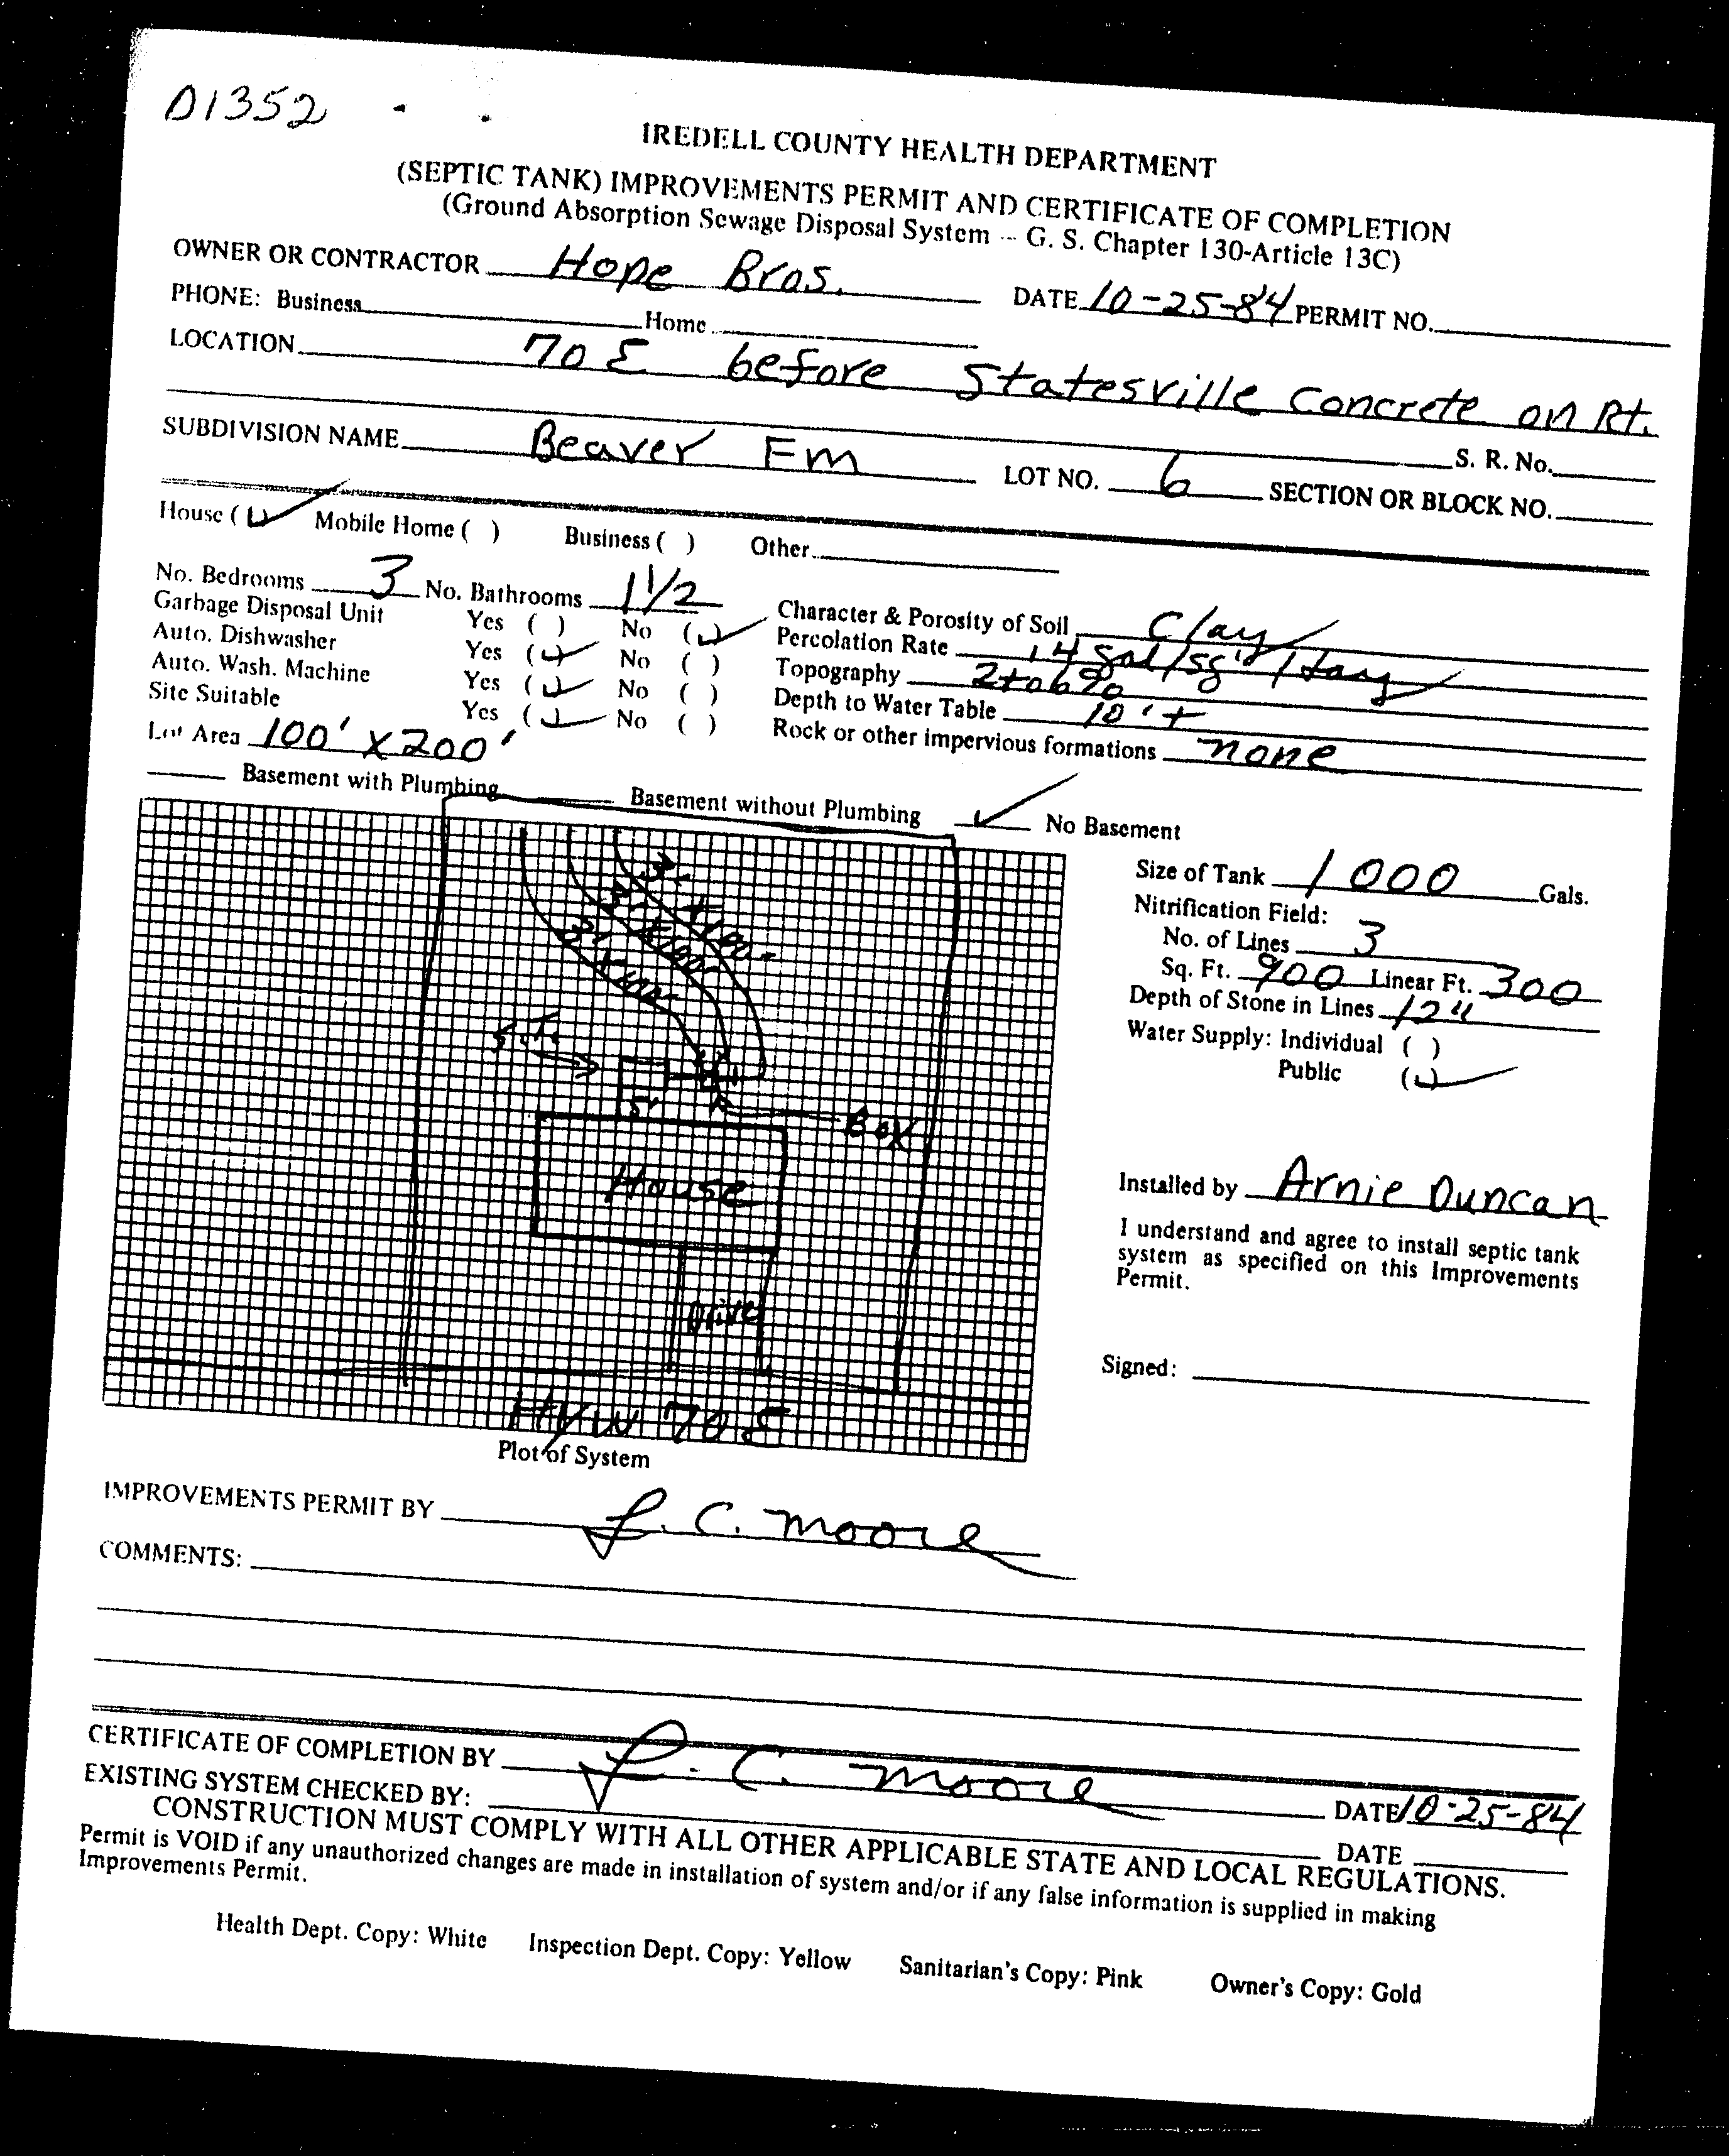 D1352
IREDELL COUNTY HEALTH DEPARTMENT
(SEPTIC TANK) IMPROVEMENTS PERMIT AND CERTIFICATE OF COMPLETION
(Ground Absorption Sewage Disposal System -- G. S. Chapter 130-Article 13C)
OWNER OR CONTRACTOR Hope Bros. DATE 10-25-84 PERMIT NO.
PHONE: Business Home
LOCATION 70 E before Statesville Concrete on Rt.
S. R. No.
SUBDIVISION NAME Beaver Fm LOT NO. 6 SECTION OR BLOCK NO.
House ( ) Mobile Home ( ) Business ( ) Other
No. Bedrooms 3 No. Bathrooms 1 1/2
Garbage Disposal Unit Yes ( ) No ( ) Character & Porosity of Soil Clay
Auto. Dishwasher Yes ( ) No ( ) Percolation Rate .4 gal/sq'/day
Auto. Wash. Machine Yes ( ) No ( ) Topography 2 to 6%
Site Suitable Yes ( ) No ( ) Depth to Water Table 10'+
Lot Area 100' x 200' Rock or other impervious formations none
Basement with Plumbing Basement without Plumbing No Basement
Size of Tank 1000 Gals.
Nitrification Field:
No. of Lines 3
Sq. Ft. 900 Linear Ft. 300
Depth of Stone in Lines 12"
Water Supply: Individual ( )
Public ( )
3' x 100'
3' x 100'
3' x 100'
S.T.
5'
Box
House
Drive
HYW 70 E
Plot of System
Installed by Arnie Duncan
I understand and agree to install septic tank
system as specified on this Improvements
Permit.
Signed:
IMPROVEMENTS PERMIT BY L. C. Moore
COMMENTS:
CERTIFICATE OF COMPLETION BY L. C. Moore DATE 10-25-84
EXISTING SYSTEM CHECKED BY: DATE
CONSTRUCTION MUST COMPLY WITH ALL OTHER APPLICABLE STATE AND LOCAL REGULATIONS.
Permit is VOID if any unauthorized changes are made in installation of system and/or if any false information is supplied in making
Improvements Permit.
Health Dept. Copy: White Inspection Dept. Copy: Yellow Sanitarian's Copy: Pink Owner's Copy: Gold